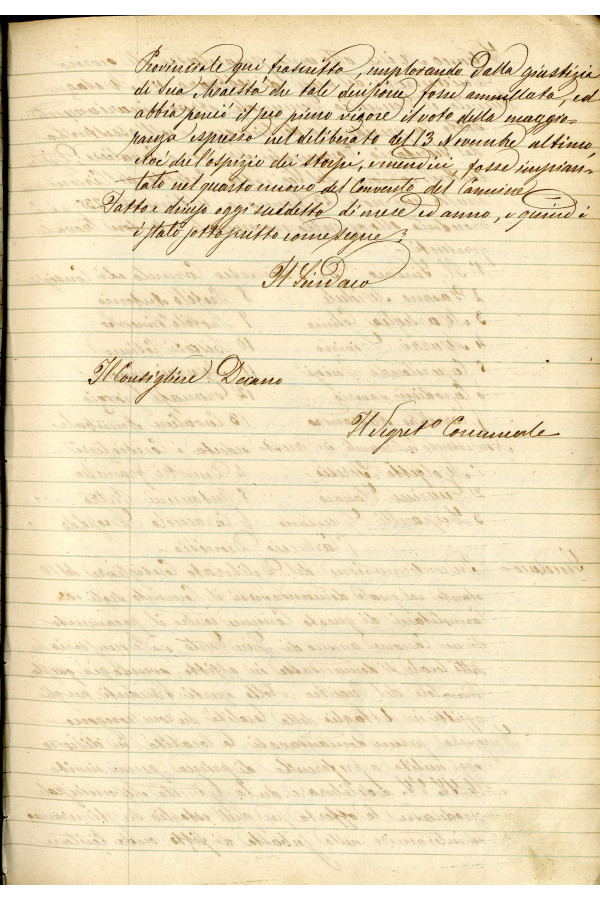 Provinciale quì trascritto, implorando dalla giustizia
di Sua Maestà che tale decisione fosse annullata, ed
abbia perciò il suo pieno vigore il voto della maggio-
ranza espresso nel deliberato del 13 Novembre ultimo,
cioè che l'ospizio dei storpi, e mendici, fosse impian-
tato nel quarto nuovo del Convento del Carmine
Fatto e chiuso oggi suddetto dì mese ed anno, e quindi
è stato sottoscritto come segue:
Il Sindaco
Il Consigliere Decano
Il Segret.o Comunale